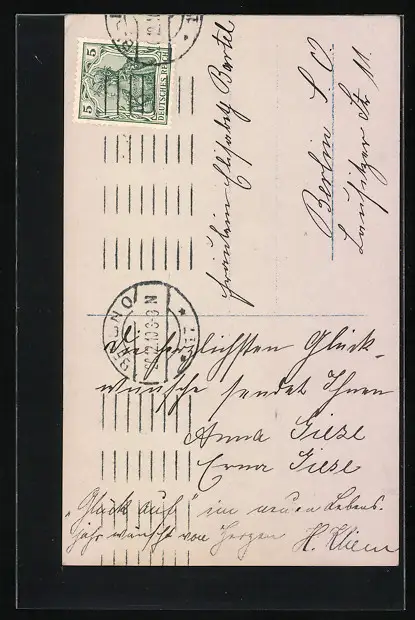 5 5
DEUTSCHES REICH
Fräulein Elisabeth Bartel
Berlin S.O.
Lausitzer Str 11.
Die herzlichsten Glück-
wünsche sendet Ihnen
Anna Giese
Erna Giese
„Glück auf“ im neuen Lebens-
jahr wünscht von Herzen H. Kliem